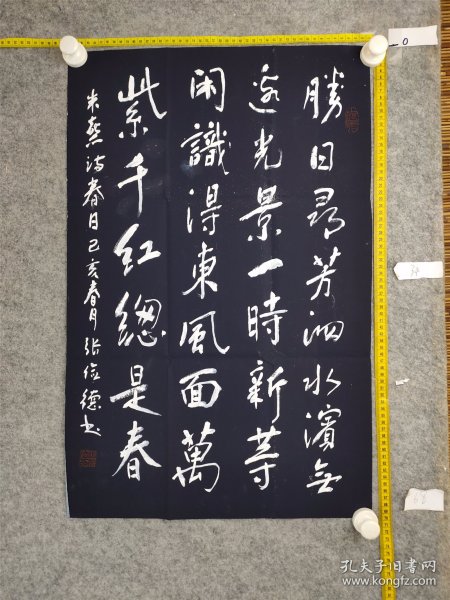 勝日尋芳泗水濱無
邊光景一時新等
闲識得東風面萬
紫千紅總是春
朱熹诗春日己亥春月张德书
0
孔夫子旧书网
www.kongfz.com